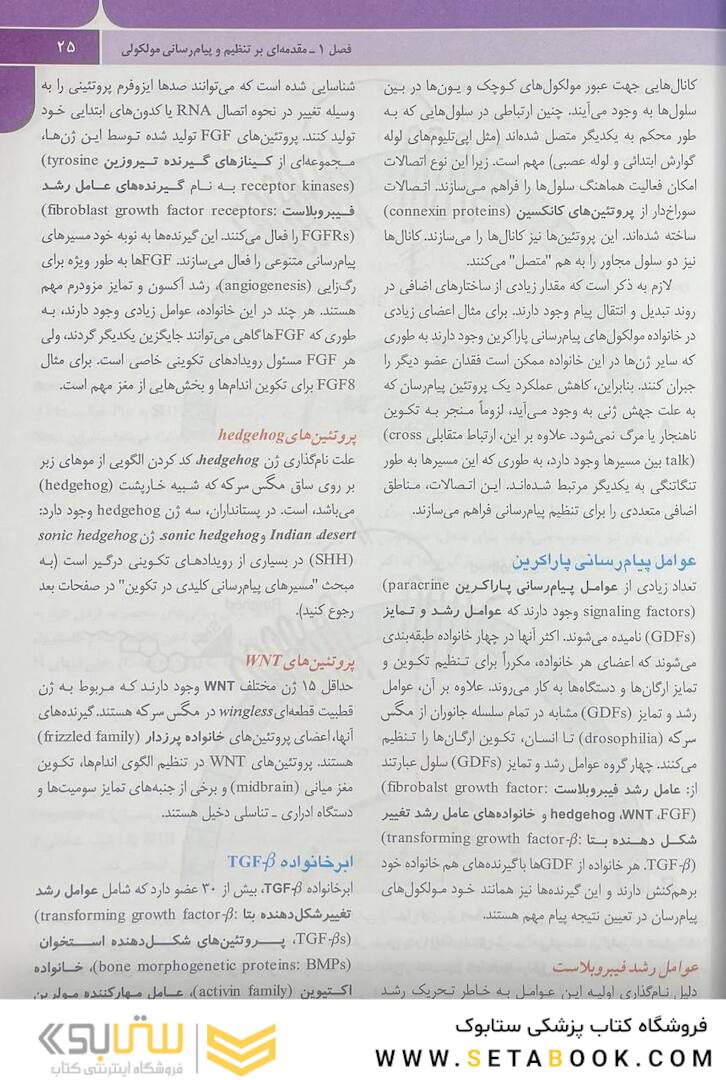 فصل ۱ ـ مقدمه‌ای بر تنظیم و پیام‌رسانی مولکولی
۲۵
کانال‌هایی جهت عبور مولکول‌های کوچک و یون‌ها در بین
سلول‌ها به وجود می‌آیند. چنین ارتباطی در سلول‌هایی که به
طور محکم به یکدیگر متصل شده‌اند (مثل اپی‌تلیوم‌های لوله
گوارش ابتدائی و لوله عصبی) مهم است. زیرا این نوع اتصالات
امکان فعالیت هماهنگ سلول‌ها را فراهم می‌سازند. اتصالات
سوراخ‌دار از پروتئین‌های کانکسین (connexin proteins)
ساخته شده‌اند. این پروتئین‌ها نیز کانال‌ها را می‌سازند. کانال‌ها
نیز دو سلول مجاور را به هم "متصل" می‌کنند.
لازم به ذکر است که مقدار زیادی از ساختارهای اضافی در
روند تبدیل و انتقال پیام وجود دارند. برای مثال اعضای زیادی
در خانواده مولکول‌های پیام‌رسانی پاراکرین وجود دارند به طوری
که سایر ژن‌ها در این خانواده ممکن است فقدان عضو دیگر را
جبران کنند. بنابراین، کاهش عملکرد یک پروتئین پیام‌رسان که
به علت جهش ژنی به وجود می‌آید، لزوماً منجر به تکوین
ناهنجار یا مرگ نمی‌شود. علاوه بر این، ارتباط متقابلی (cross
talk) بین مسیرها وجود دارد، به طوری که این مسیرها به طور
تنگاتنگی به یکدیگر مرتبط شده‌اند. این اتصالات، مناطق
اضافی متعددی را برای تنظیم پیام‌رسانی فراهم می‌سازند.
عوامل پیام‌رسانی پاراکرین
تعداد زیادی از عوامل پیام‌رسانی پاراکرین (paracrine
signaling factors) وجود دارند که عوامل رشد و تمایز
(GDFs) نامیده می‌شوند. اکثر آنها در چهار خانواده طبقه‌بندی
می‌شوند که اعضای هر خانواده، مکرراً برای تنظیم تکوین و
تمایز ارگان‌ها و دستگاه‌ها به کار می‌روند. علاوه بر آن، عوامل
رشد و تمایز (GDFs) مشابه در تمام سلسله جانوران از مگس
سرکه (drosophilia) تا انسان، تکوین ارگان‌ها را تنظیم
می‌کنند. چهار گروه عوامل رشد و تمایز (GDFs) سلول عبارتند
از: عامل رشد فیبروبلاست (fibrobalst growth factor:
FGF)، WNT، hedgehog و خانواده‌های عامل رشد تغییر
شکل دهنده بتا (transforming growth factor-β:
TGF-β). هر خانواده از GDFها با گیرنده‌های هم خانواده خود
برهم‌کنش دارند و این گیرنده‌ها نیز همانند خود مولکول‌های
پیام‌رسان در تعیین نتیجه پیام مهم هستند.
عوامل رشد فیبروبلاست
دلیل نام‌گذاری اولیه این عوامل به خاطر تحریک رشد
شناسایی شده است که می‌توانند صدها ایزوفرم پروتئینی را به
وسیله تغییر در نحوه اتصال RNA یا کدون‌های ابتدایی خود
تولید کنند. پروتئین‌های FGF تولید شده توسط این ژن‌ها،
مجموعه‌ای از کینازهای گیرنده تیروزین (tyrosine
receptor kinases) به نام گیرنده‌های عامل رشد
فیبروبلاست (fibroblast growth factor receptors:
FGFRs) را فعال می‌کنند. این گیرنده‌ها به نوبه خود مسیرهای
پیام‌رسانی متنوعی را فعال می‌سازند. FGFها به طور ویژه برای
رگ‌زایی (angiogenesis)، رشد آکسون و تمایز مزودرم مهم
هستند. هر چند در این خانواده، عوامل زیادی وجود دارند، به
طوری که FGFها گاهی می‌توانند جایگزین یکدیگر گردند، ولی
هر FGF مسئول رویدادهای تکوینی خاصی است. برای مثال
FGF8 برای تکوین اندام‌ها و بخش‌هایی از مغز مهم است.
پروتئین‌های hedgehog
علت نام‌گذاری ژن hedgehog، کد کردن الگویی از موهای زبر
بر روی ساق مگس سرکه که شبیه خارپشت (hedgehog)
می‌باشد، است. در پستانداران، سه ژن hedgehog وجود دارد:
Indian ،desert و sonic hedgehog. ژن sonic hedgehog
(SHH) در بسیاری از رویدادهای تکوینی درگیر است (به
مبحث "مسیرهای پیام‌رسانی کلیدی در تکوین" در صفحات بعد
رجوع کنید).
پروتئین‌های WNT
حداقل ۱۵ ژن مختلف WNT وجود دارند که مربوط به ژن
قطبیت قطعه‌ای wingless در مگس سرکه هستند. گیرنده‌های
آنها، اعضای پروتئین‌های خانواده پرزدار (frizzled family)
هستند. پروتئین‌های WNT در تنظیم الگوی اندام‌ها، تکوین
مغز میانی (midbrain) و برخی از جنبه‌های تمایز سومیت‌ها و
دستگاه ادراری ـ تناسلی دخیل هستند.
ابرخانواده TGF-β
ابرخانواده TGF-β، بیش از ۳۰ عضو دارد که شامل عوامل رشد
تغییرشکل‌دهنده بتا (transforming growth factor-β:
TGF-βs)، پروتئین‌های شکل‌دهنده استخوان
(bone morphogenetic proteins: BMPs)، خانواده
اکتیوین (activin family)، عامل مهارکننده مولرین
فروشگاه کتاب پزشکی ستابوک
WWW.SETABOOK.COM
ستابوک
فروشگاه اینترنتی کتاب